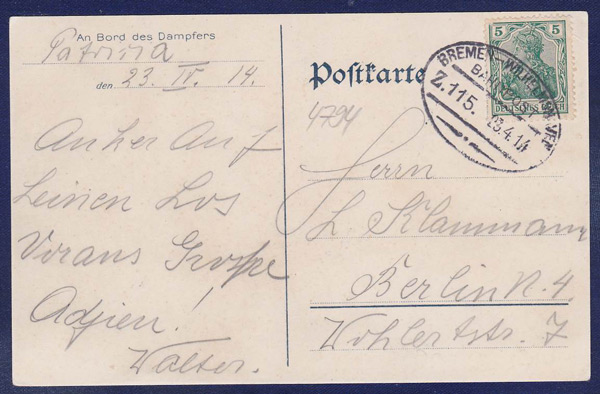 An Bord des Dampfers
Patricia
den 23. IV. 14.
Anker Auf
Leinen Los
Voraus Grosse
Adjien!
Walter.
Postkarte
4794
Herrn
L Klammann
Berlin N. 4
Wöhlertstr. 7
5 5
DEUTSCHES REICH
BREMEN-WILHELMSHAVEN
BAHNPOST
Z.115.
23.4.14